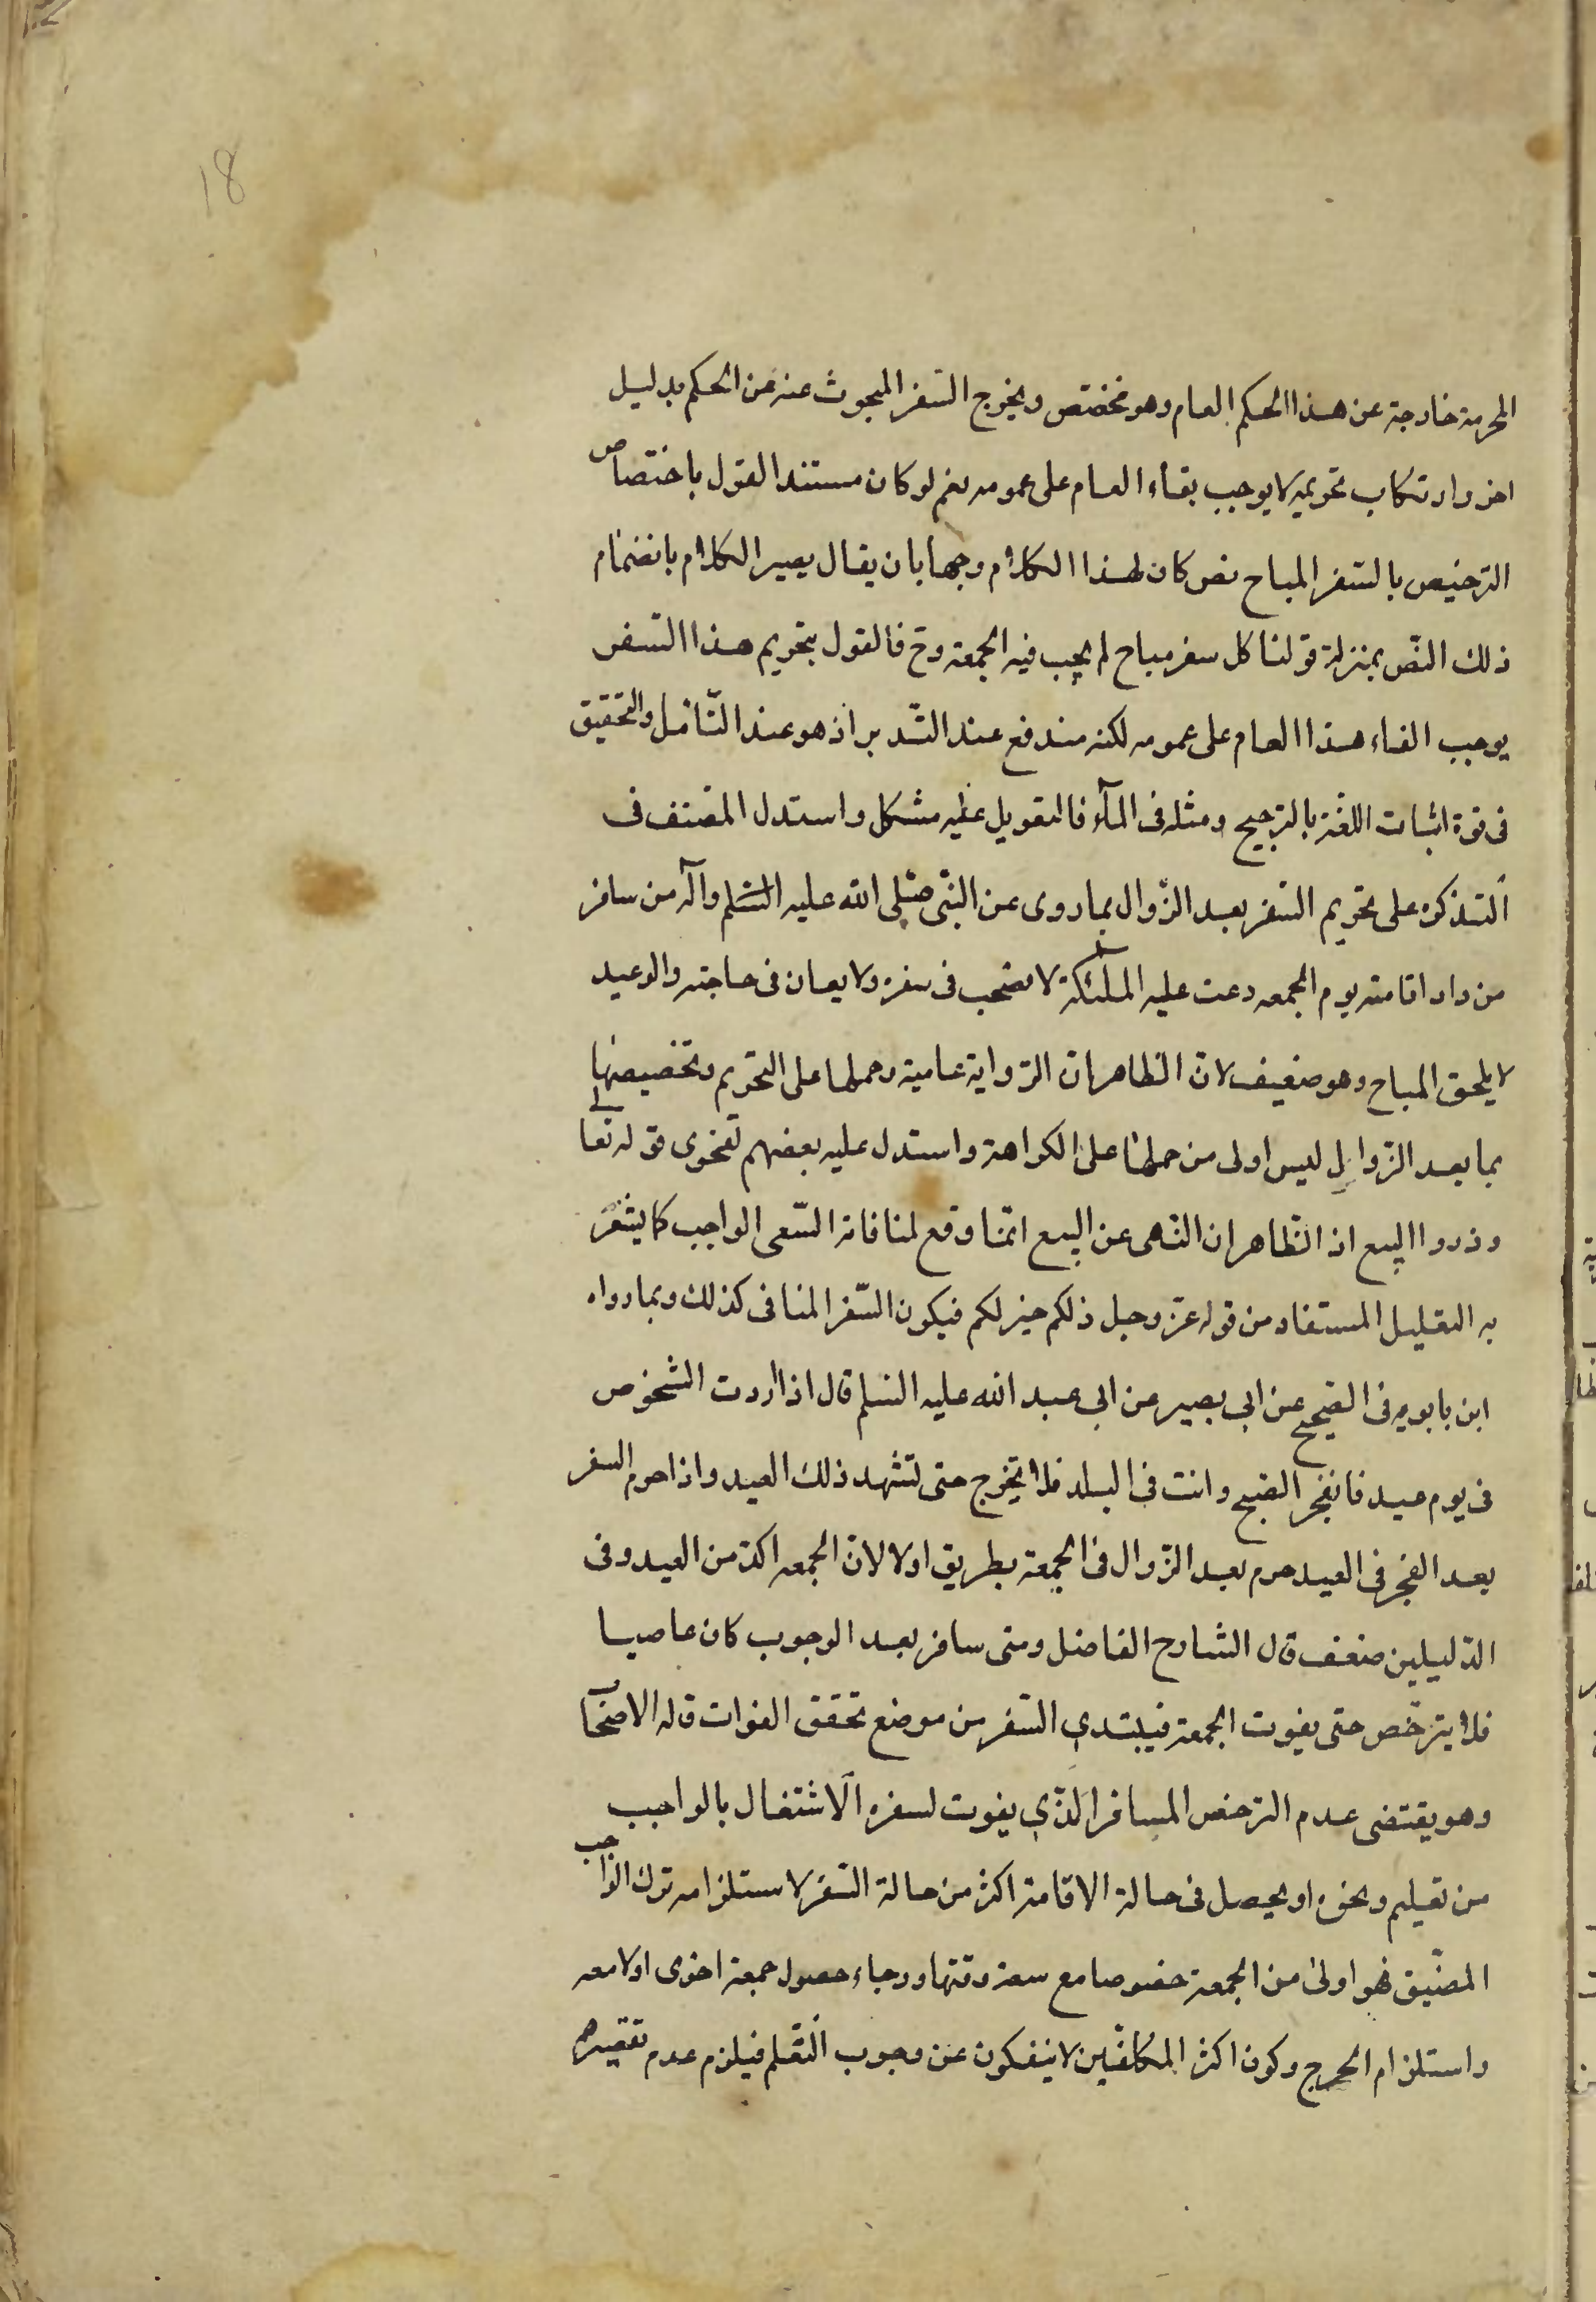 18
المحرمة خارجة عن هذا الحكم العام وهو مختص ويخرج السفر المبحوث عنه عن الحكم بدليل
اخر وارتكاب تحريمه لا يوجب بقاء العام على عمومه نعم لو كان مستند القول باختصاص
الترخيص بالسفر المباح نص كان لهذا الكلام وجها بان يقال يصير الكلام بانضمام
ذلك النص بمنزلة قولنا كل سفر مباح لم يجب فيه الجمعة وح فالقول بتحريم هذا السفر
يوجب الغاء هذا العام على عمومه لكنه مندفع عند التدبر اذ هو عند التامل والتحقيق
فى قوة اثبات اللغة بالترجيح ومثله فى المآء فالتعويل عليه مشكل واستدل المصنف فى
التذكره على تحريم السفر بعد الزوال بما روى عن النبى صلى الله عليه السلم وآله من سافر
من دار اقامته يوم الجمعه دعت عليه الملئكة لا يصحب فى سفره ولا يعان فى حاجته والوعيد
لا يلحق المباح وهو ضعيف لان الظاهر ان الرواية عامية وحملها على التحريم وتخصيصها
بما بعد الزوال ليس اولى من حملها على الكراهة واستدل عليه بعضهم بفحوى قوله تعالى
وذروا البيع اذ الظاهر ان النهى عن البيع انما وقع لمنافاته السعى الواجب كما يشعر
به التعليل المستفاد من قوله عز وجل ذلكم خير لكم فيكون السفر المنافى كذلك وبما رواه
ابن بابويه فى الصحيح عن ابى بصير عن ابى عبد الله عليه السلم قال اذا اردت الشخوص
فى يوم عيد فانفجر الصبح وانت فى البلد فلا تخرج حتى تشهد ذلك العيد واذا حرم السفر
بعد الفجر فى العيد حرم بعد الزوال فى الجمعة بطريق اولا لان الجمعه اكد من العيد وفى
الدليلين ضعف قال الشارح الفاضل ومتى سافر بعد الوجوب كان عاصيا
فلا يترخص حتى يفوت الجمعة فيبتدى السفر من موضع تحقق الفوات قاله الاصحاب
وهو يقتضى عدم الترخص المسافر الذي يفوت لسفره الاشتغال بالواجب
من تعليم ونحوه او يحصل فى حالة الاقامة اكثر من حالة السفر لاستلزامه ترك الواجب
المضيق فهو اولى من الجمعة خصوصا مع سعة وقتها ورجاء حصول جمعة اخرى اولا معه
واستلزام الحرج وكون اكثر المكلفين لا ينفكون عن وجوب التعلم فيلزم عدم تقصيرهم